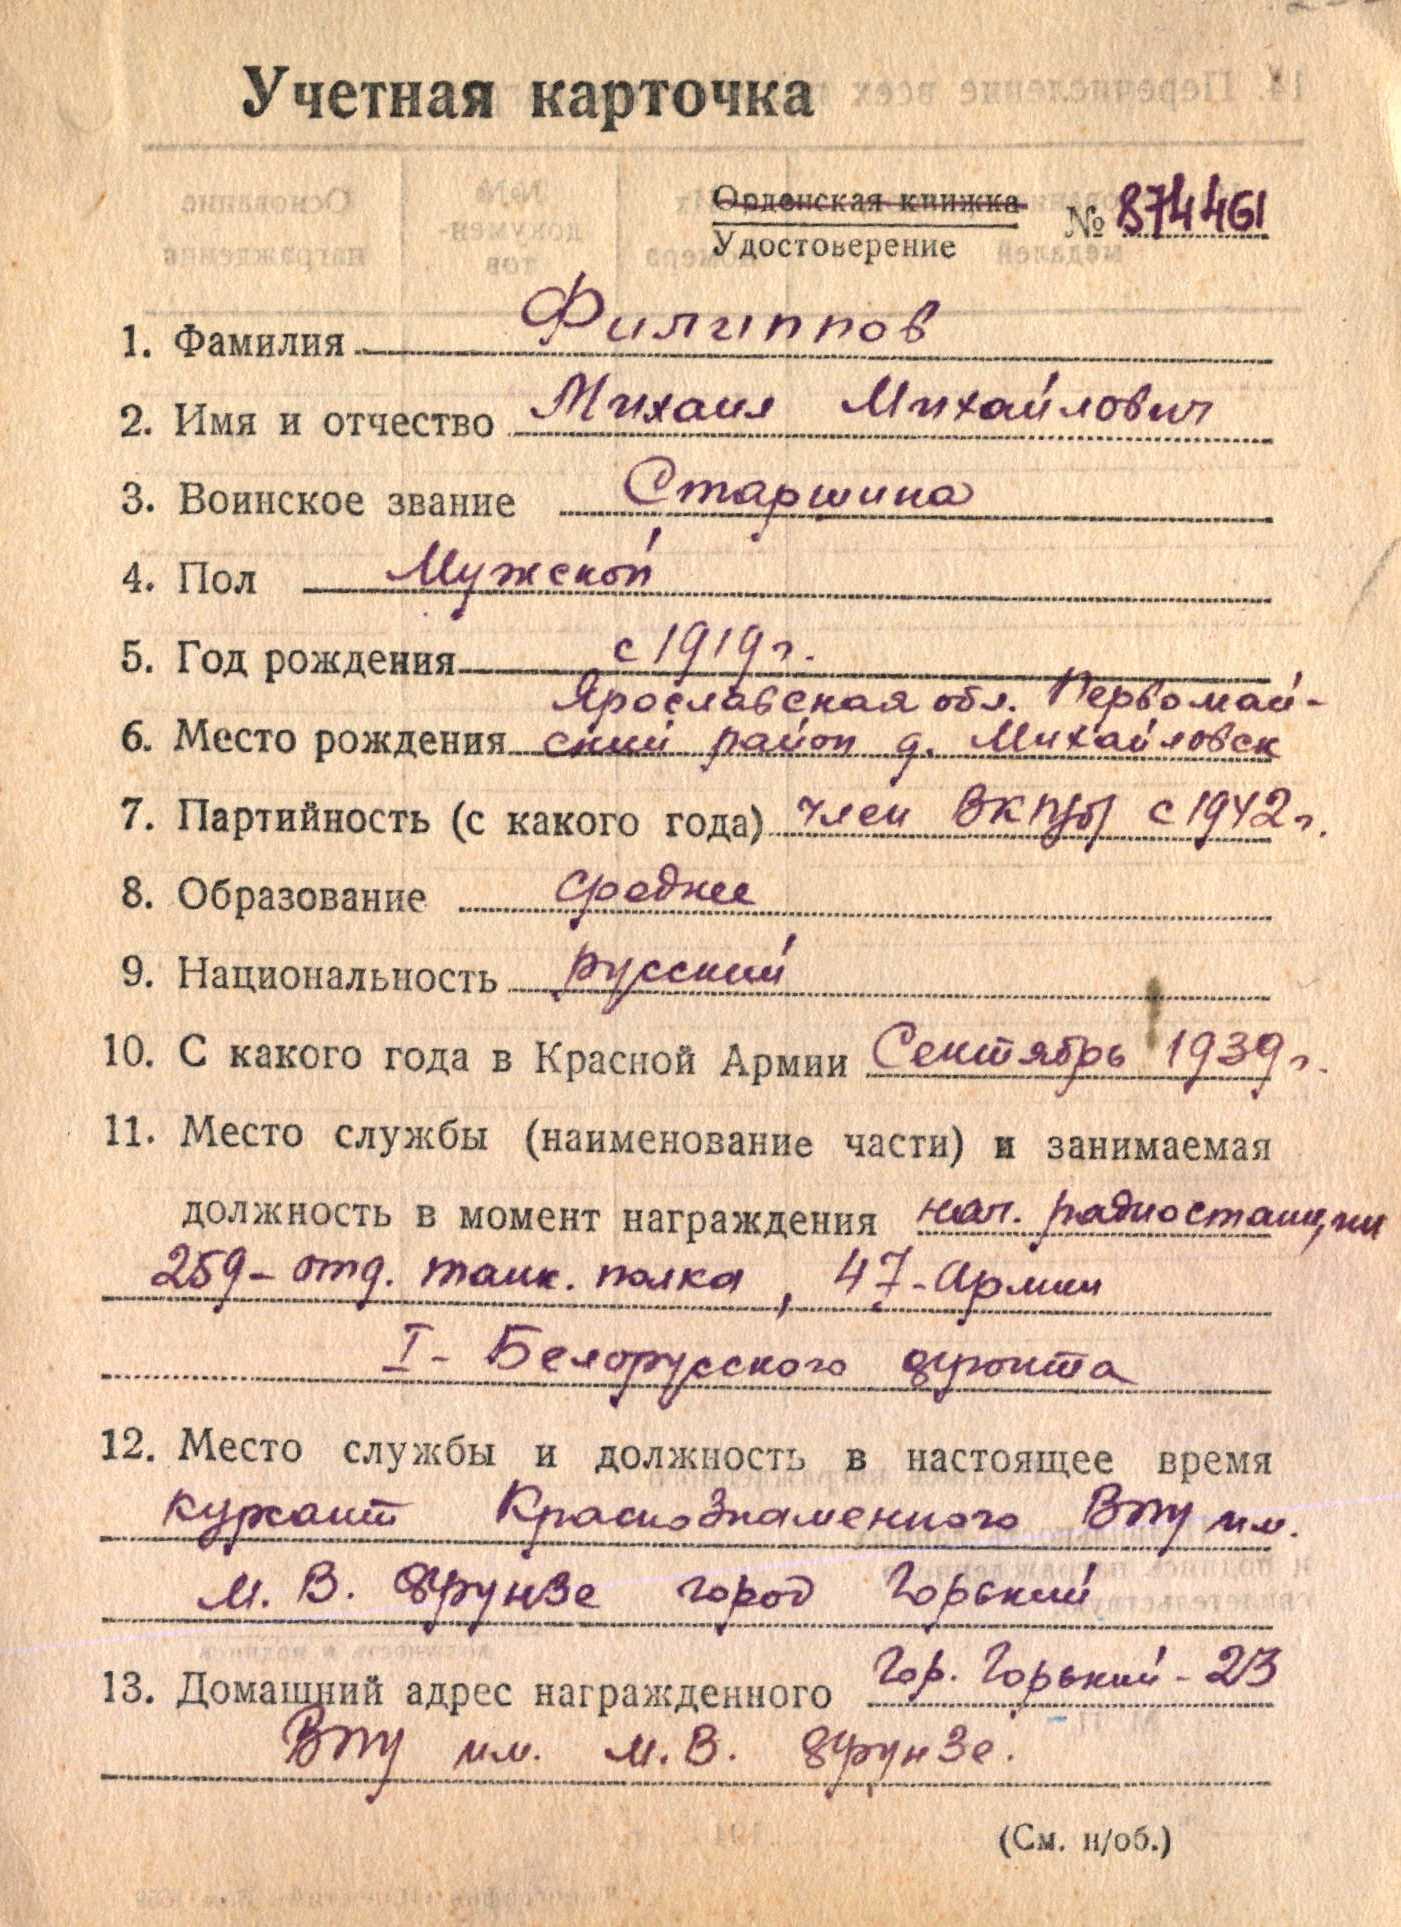 Учетная карточка
Орденская книжка
Удостоверение
№ 874461
1. Фамилия Филиппов
2. Имя и отчество Михаил Михайлович
3. Воинское звание Старшина
4. Пол Мужской
5. Год рождения с 1919 г.
Ярославская обл. Первомай-
6. Место рождения ский район д. Михайловск
7. Партийность (с какого года) член ВКП(б) с 1942 г.
8. Образование среднее
9. Национальность русский
10. С какого года в Красной Армии Сентябрь 1939 г.
11. Место службы (наименование части) и занимаемая
должность в момент награждения нач. радиостанции
259-отд. танк. полка, 47-Армии
I-Белорусского фронта
12. Место службы и должность в настоящее время
курсант Краснознаменного ВПУ им.
М. В. Фрунзе город Горький
13. Домашний адрес награжденного Гор. Горький-23
ВПУ им. М. В. Фрунзе.
(См. н/об.)